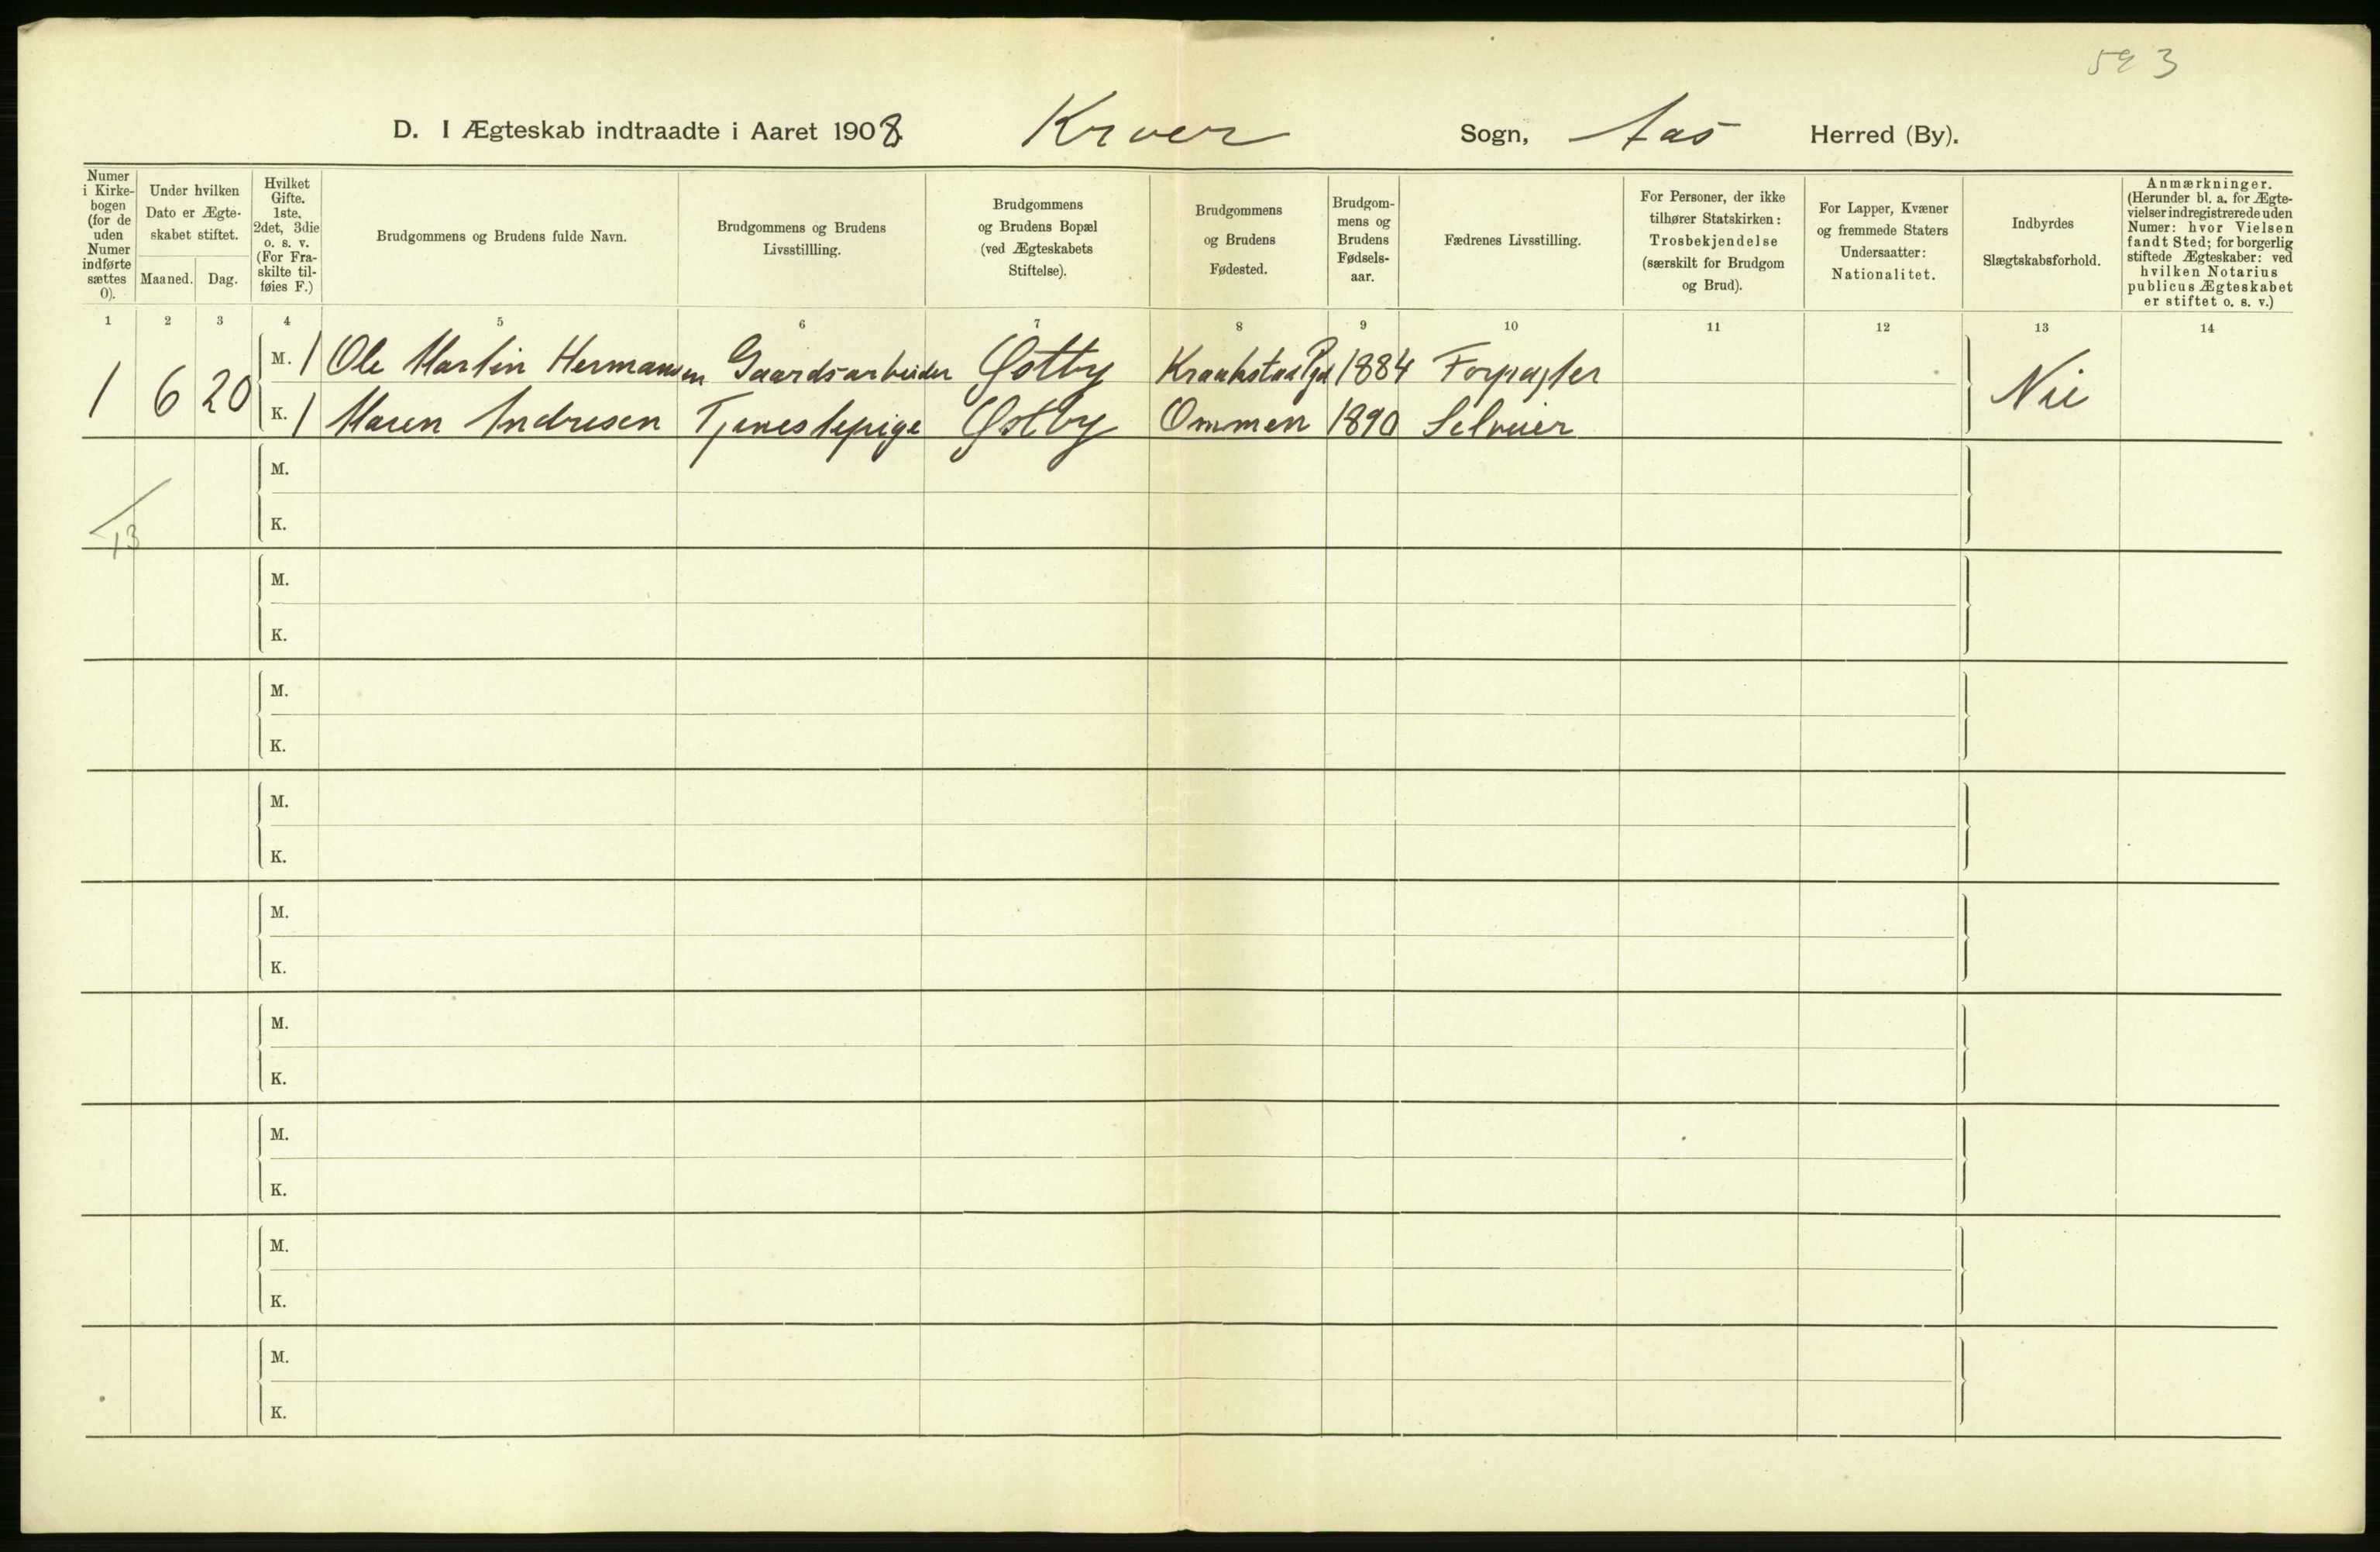 593
D. I Ægteskab indtraadte i Aaret 1908. Kroer Sogn, Aas Herred (By).
Numer i Kirke-bogen (for de uden Numer indførte sættes 0).
Under hvilken Dato er Ægte-skabet stiftet.
Maaned. Dag.
Hvilket Gifte. 1ste, 2det, 3die o. s. v. (For Fra-skilte til-føies F.)
Brudgommens og Brudens fulde Navn.
Brudgommens og Brudens Livsstillling.
Brudgommens og Brudens Bopæl (ved Ægteskabets Stiftelse).
Brudgommens og Brudens Fødested.
Brudgom-mens og Brudens Fødsels-aar.
Fædrenes Livsstilling.
For Personer, der ikke tilhører Statskirken: Trosbekjendelse (særskilt for Brudgom og Brud).
For Lapper, Kvæner og fremmede Staters Undersaatter: Nationalitet.
Indbyrdes Slægtskabsforhold.
Anmærkninger. (Herunder bl. a. for Ægte-vielser indregistrerede uden Numer: hvor Vielsen fandt Sted; for borgerlig stiftede Ægteskaber: ved hvilken Notarius publicus Ægteskabet er stiftet o. s. v.)
1 2 3 4 5 6 7 8 9 10 11 12 13 14
1 6 20 M. 1 Ole Martin Hermansen Gaardsarbeider Østby Kraakstad Pgd 1884 Forpagter Nei
K. 1 Maren Andresen Tjenestepige Østby Ommen 1890 Selveier
M.
13 K.
M.
K.
M.
K.
M.
K.
M.
K.
M.
K.
M.
K.
M.
K.
M.
K.